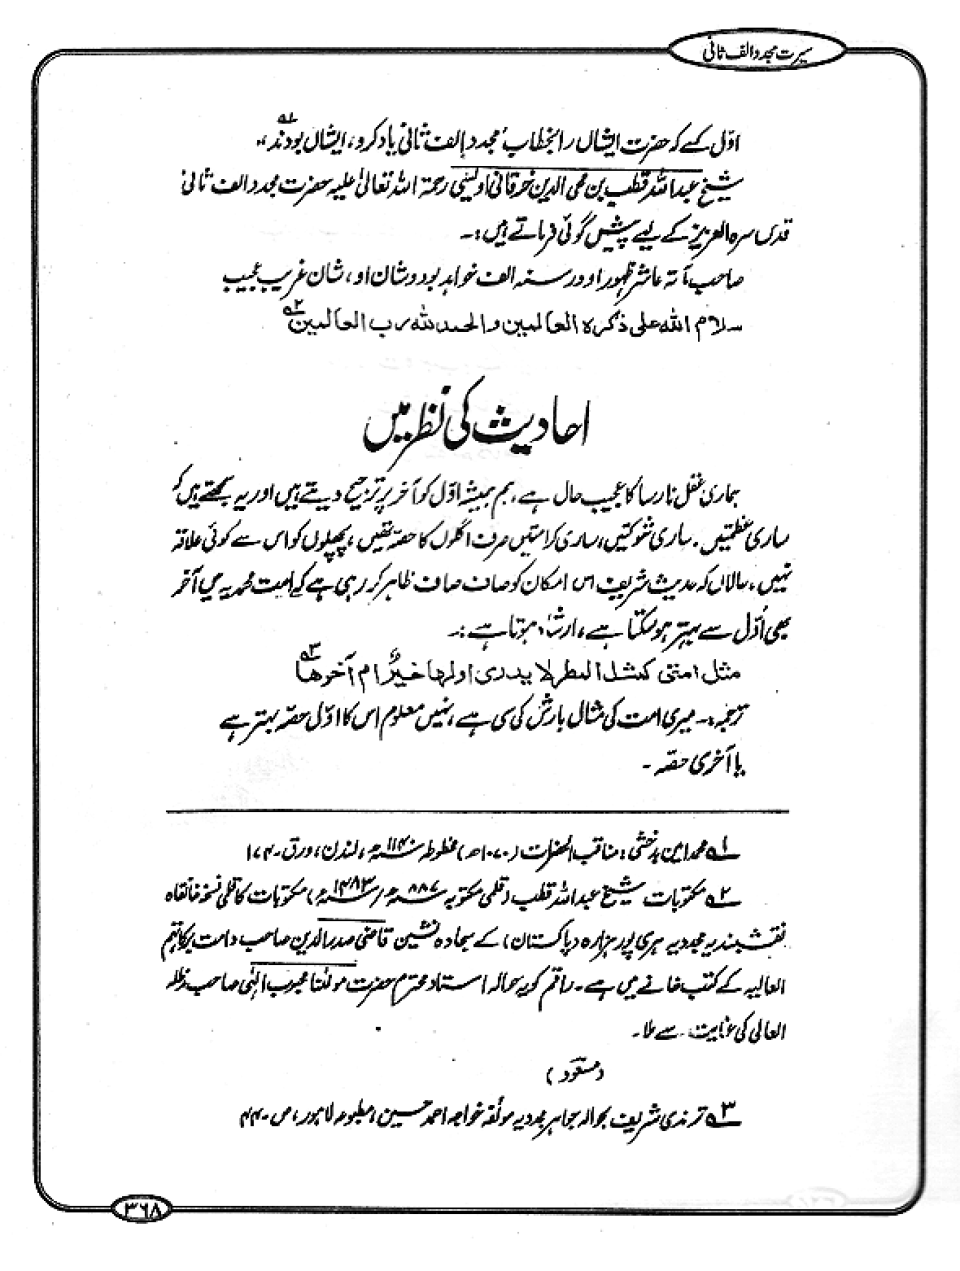 سیرت مجدد الف ثانی
اوّل کسے کہ حضرت ایشاں را بخطاب مجدد الف ثانی یاد کرد، ایشاں بودند،، ۱؎
شیخ عبداللہ قطب بن محی الدین خرقانی اویسی رحمۃ اللہ تعالیٰ علیہ حضرت مجدد الف ثانی
قدس سرہ العزیز کے لیے پیش گوئی فرماتے ہیں:۔
صاحب مأتہ عاشر ظہور او در سنہ الف خواہد بود و شان او، شان غریب عجیب
سلام اللہ علی ذکرہ العالمین والحمد للہ رب العالمین ۲؎
احادیث کی نظر میں
ہماری عقل نارسا کا عجیب حال ہے، ہم ہمیشہ اوّل کو آخر پر ترجیح دیتے ہیں اور یہ سمجھتے ہیں کہ
ساری عظمتیں، ساری شوکتیں، ساری کرامتیں صرف اگلوں کا حصّہ تھیں، پچھلوں کو اس سے کوئی علاقہ
نہیں، حالاں کہ حدیث شریف اس امکان کو صاف صاف ظاہر کر رہی ہے کہ امت محمدیہ میں آخر
بھی اُوّل سے بہتر ہو سکتا ہے، ارشاد ہوتا ہے:۔
مثل امتی کمثل المطر لا یدری اولہا خیرٌ ام آخرھا ۳؎
ترجمہ:۔ میری امت کی مثال بارش کی سی ہے، نہیں معلوم اس کا اوّل حصّہ بہتر ہے
یا آخری حصّہ۔
۱؎ محمد امین بدخشی: مناقب الحضرات (۱۰۷۰ھ) مخطوطہ ۱۱۴۰ھ، لندن، ورق۔ ۱۷۴
۲؎ مکتوبات شیخ عبداللہ قطب (قلمی مکتوبہ ۸۸۷ھ/۱۴۸۳ء) مکتوبات کا قلمی نسخہ خانقاہ
نقشبندیہ مجددیہ ہری پور ہزارہ (پاکستان) کے سجادہ نشین قاضی صدر الدین صاحب دامت برکاتہم
العالیہ کے کتب خانے میں ہے۔ راقم کو یہ حوالہ استاد محترم حضرت مولٰنا محبوب الٰہی صاحب مدظلہ
العالی کی عنایت سے ملا۔
(مسعود)
۳؎ ترمذی شریف بحوالہ جواہر مجددیہ مولّفہ خواجہ احمد حسین، مطبوعہ لاہور، ص۔ ۴۴
۳۶۸